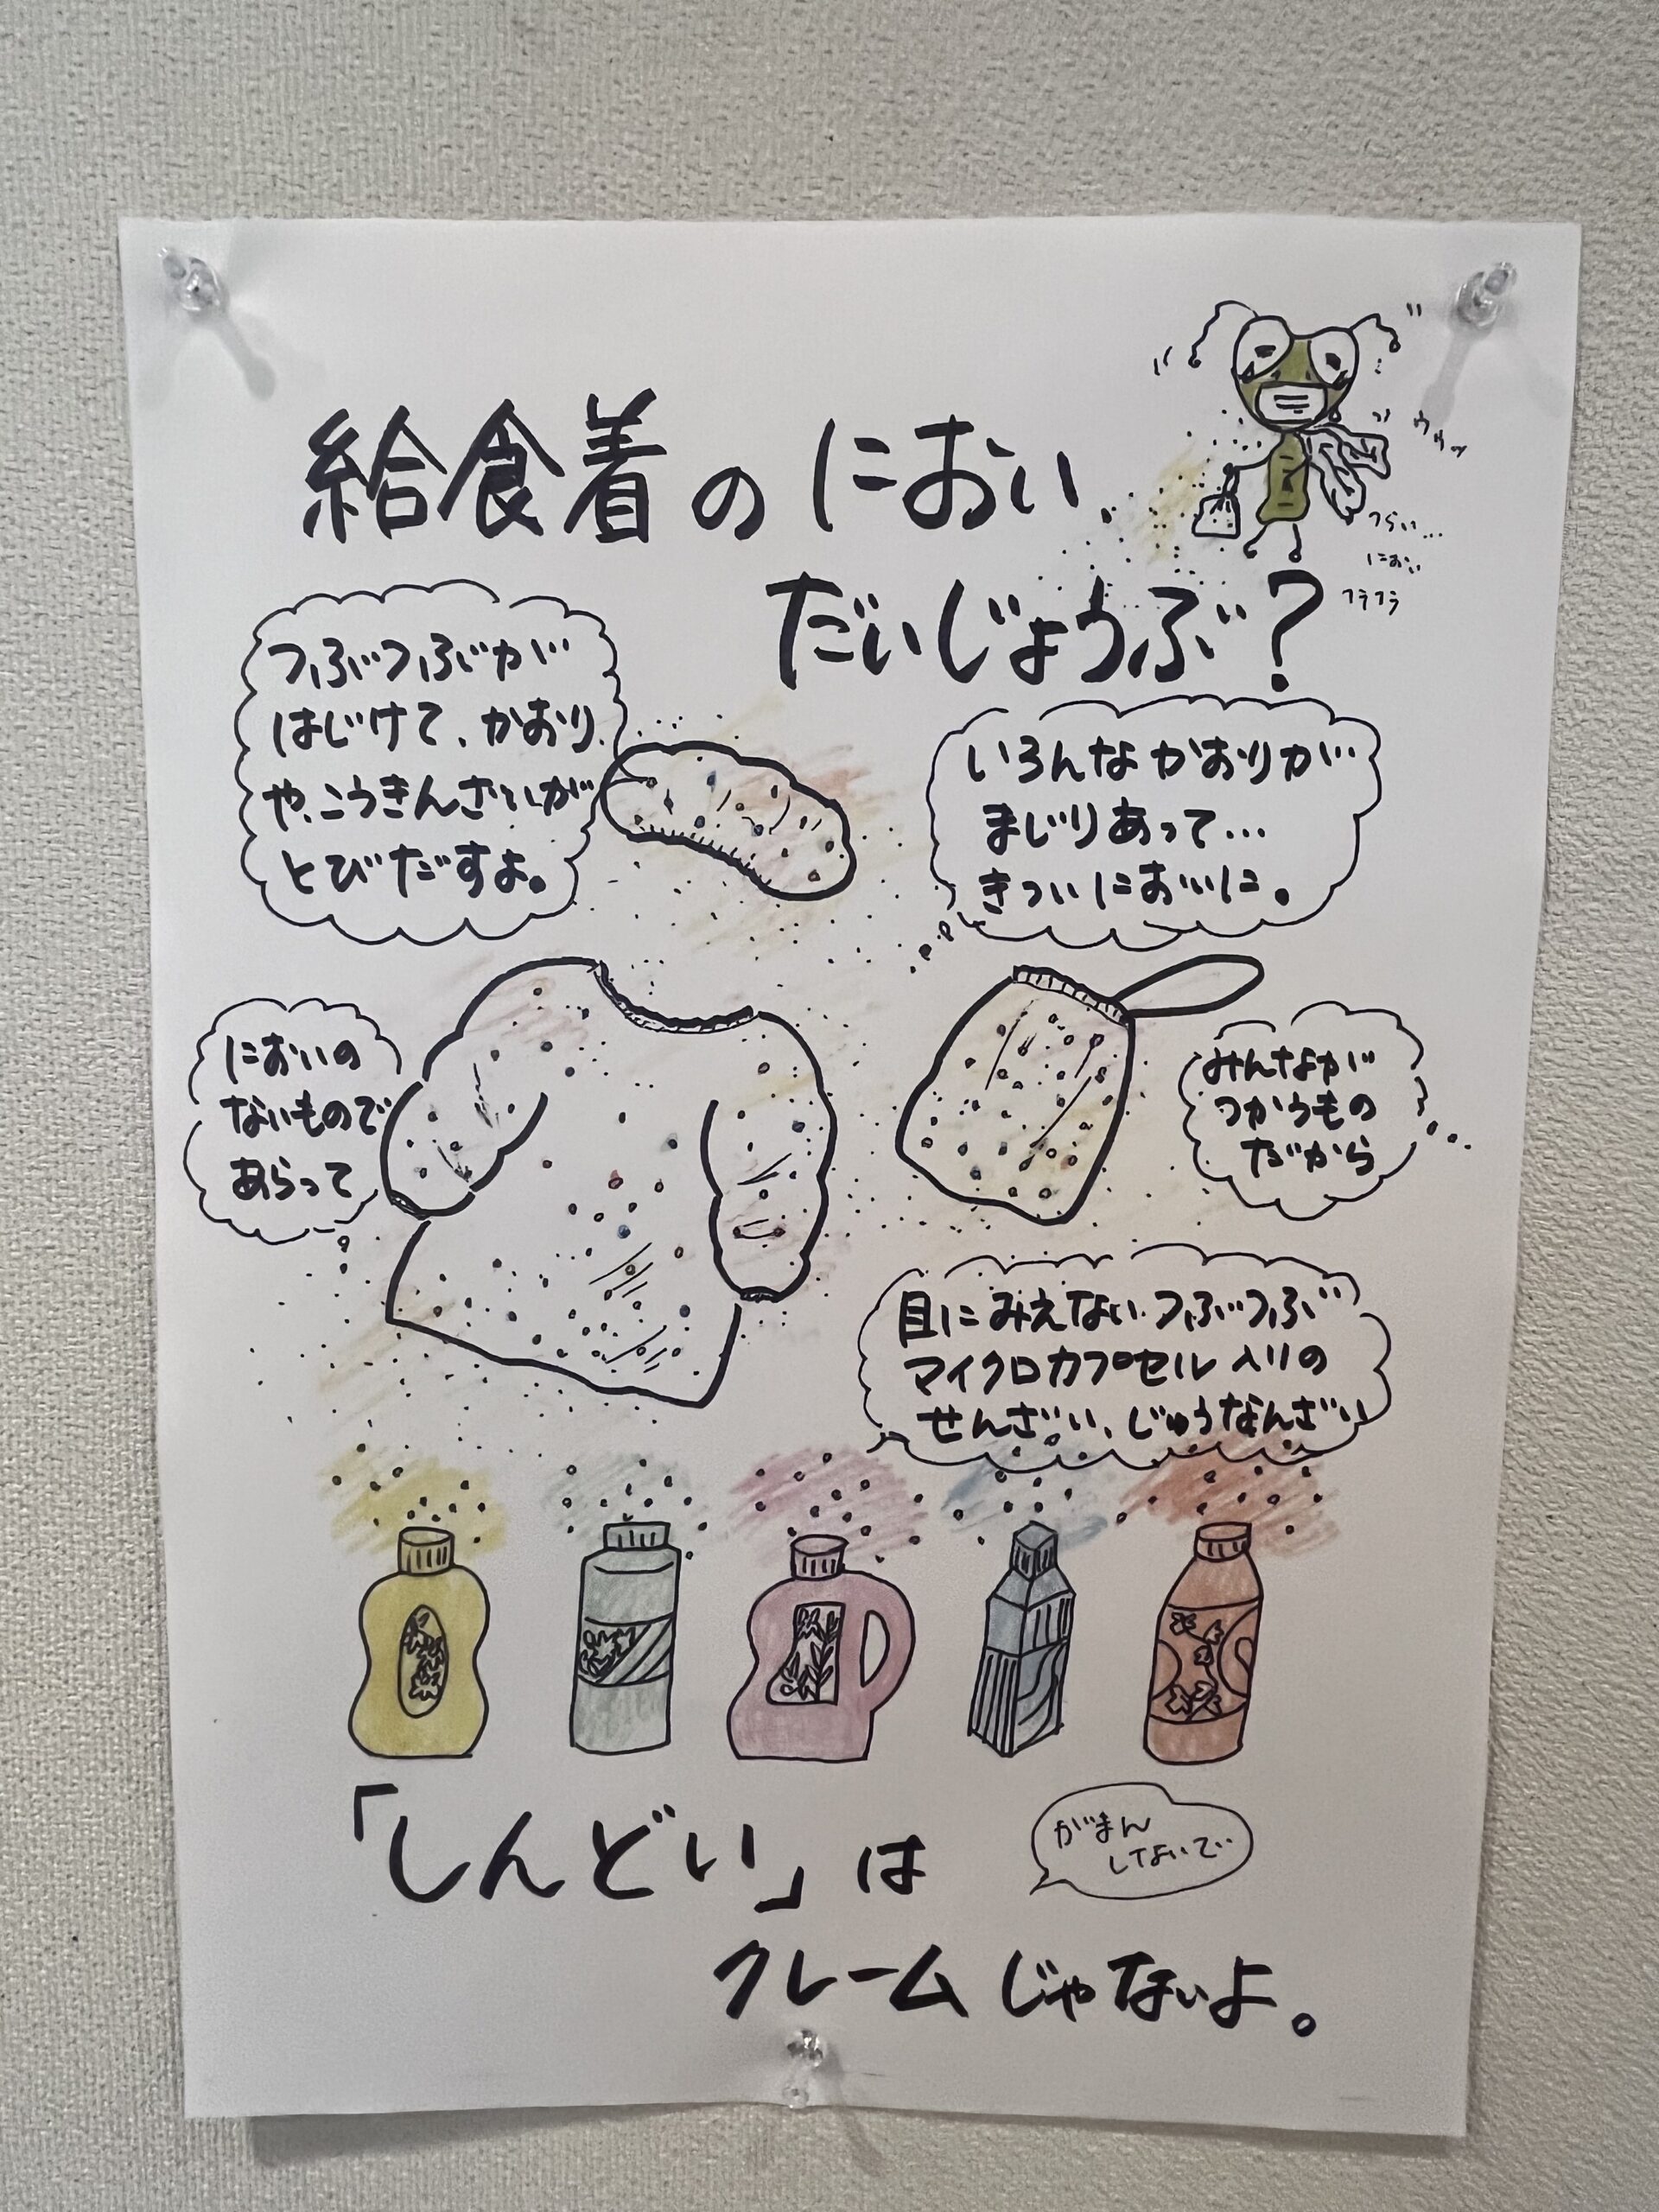 給食着のにおい
だいじょうぶ?
ウゥッ
つらい…
におい
フラフラ
つぶつぶが
はじけて、かおり
や、こうきんざいが
とびだすよ。
いろんなかおりが
まじりあって…
きついにおいに。
においの
ないもので
あらって
みんなが
つかうもの
だから
目にみえないつぶつぶ
マイクロカプセル入りの
せんざい、じゅうなんざい
「しんどい」は
がまん
しないで
クレームじゃないよ。